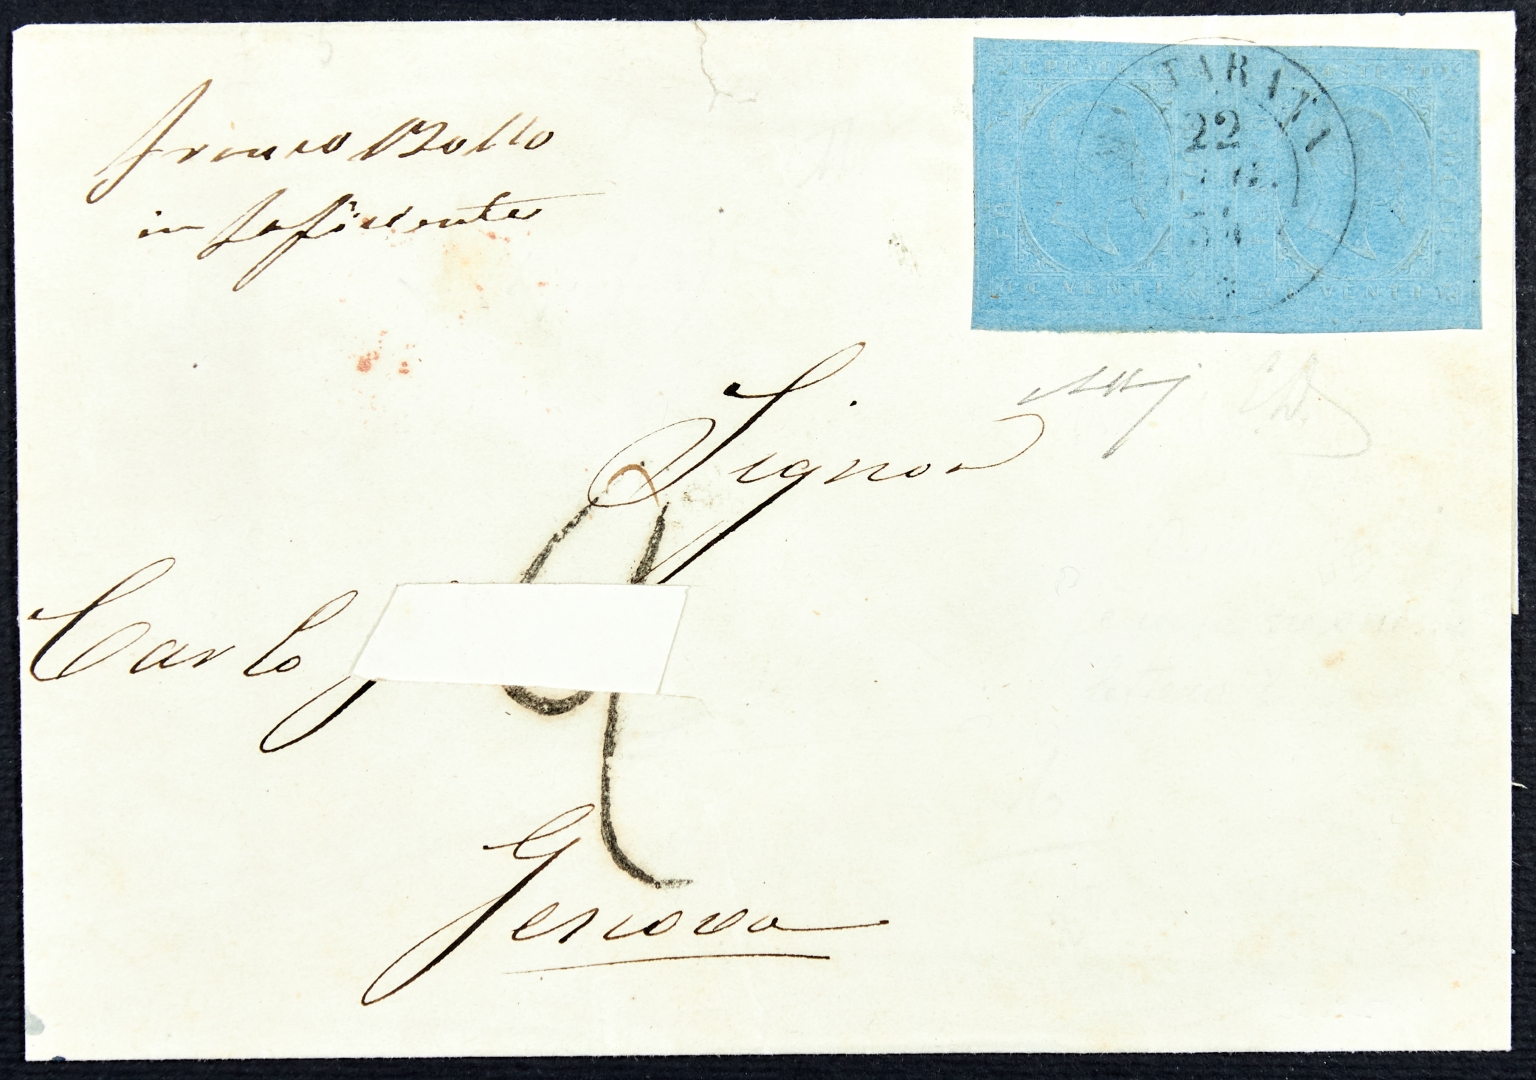 franco Bollo
insufficiente
22
54
C. VENTI
VENTI
Signor
Carlo
Genova